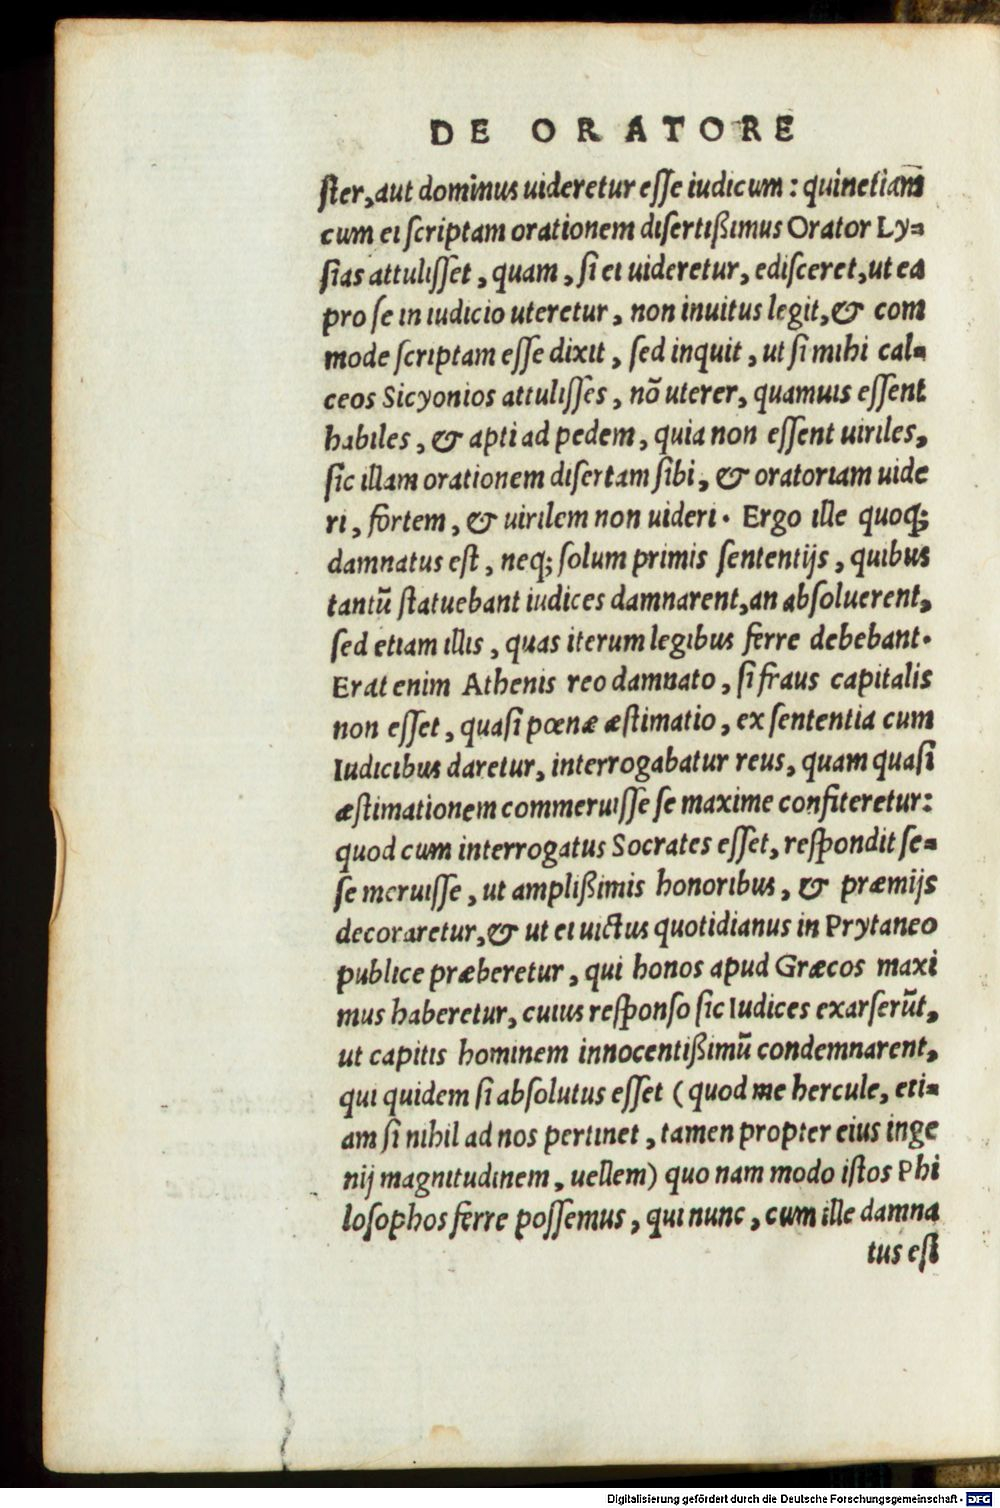 DE ORATORE
ſter, aut dominus uideretur eſſe iudicum: quinetiam
cum ei ſcriptam orationem diſertißimus Orator Ly=
ſias attuliſſet, quam, ſi ei uideretur, ediſceret, ut ea
pro ſe in iudicio uteretur, non inuitus legit, & com
mode ſcriptam eſſe dixit, ſed inquit, ut ſi mihi cal=
ceos Sicyonios attuliſſes, nõ uterer, quamuis eſſent
habiles, & apti ad pedem, quia non eſſent uiriles,
ſic illam orationem diſertam ſibi, & oratoriam uide
ri, fortem, & uirilem non uideri. Ergo ille quoq;
damnatus eſt, neq; ſolum primis ſententijs, quibus
tantũ ſtatuebant iudices damnarent, an abſoluerent,
ſed etiam illis, quas iterum legibus ferre debebant.
Erat enim Athenis reo damnato, ſi fraus capitalis
non eſſet, quaſi pœnæ æſtimatio, ex ſententia cum
Iudicibus daretur, interrogabatur reus, quam quaſi
æſtimationem commeruiſſe ſe maxime confiteretur:
quod cum interrogatus Socrates eſſet, reſpondit ſe=
ſe meruiſſe, ut amplißimis honoribus, & præmijs
decoraretur, & ut ei uictus quotidianus in Prytaneo
publice præberetur, qui honos apud Græcos maxi
mus haberetur, cuius reſponſo ſic Iudices exarſerũt,
ut capitis hominem innocentißimũ condemnarent,
qui quidem ſi abſolutus eſſet (quod me hercule, eti=
am ſi nihil ad nos pertinet, tamen propter eius inge
nij magnitudinem, uellem) quo nam modo iſtos Phi
loſophos ferre poſſemus, qui nunc, cum ille damna
tus eſt
Digitalisierung gefördert durch die Deutsche Forschungsgemeinschaft - DFG